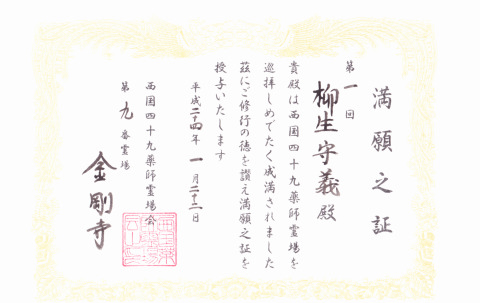 満願之証
第一回
柳生守義殿
貴殿は西国四十九薬師霊場を
巡拝しめでたく成満されました
茲にご修行の徳を讃え満願之証を
授与いたします
平成二十四年一月二十二日
西国四十九薬師霊場会
第九番霊場
金剛寺